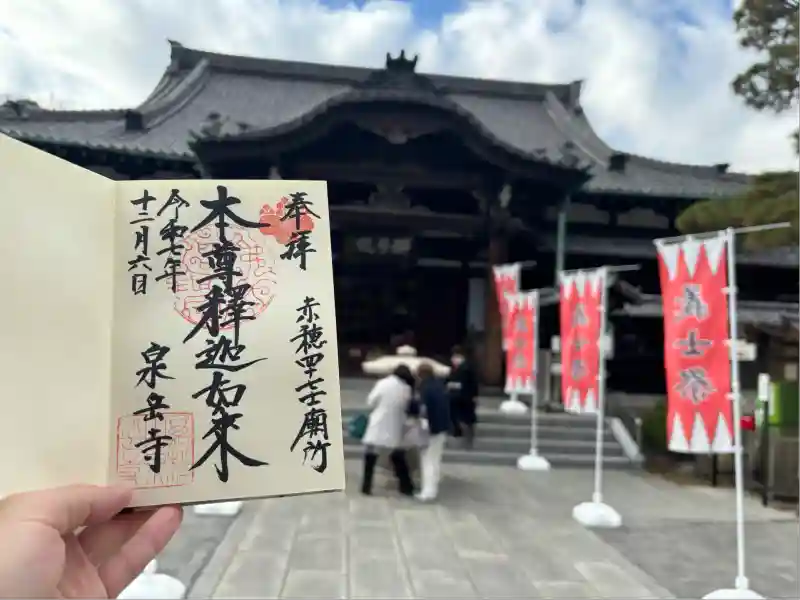 奉拝
赤穂四十七士廟所
本尊釋迦如来
令和七年
十二月六日
泉岳寺
義士祭
義士祭
義士祭